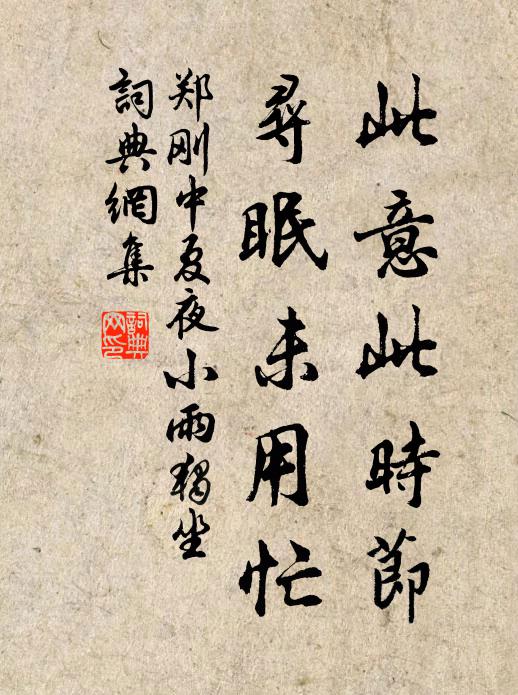 此意此時節
尋眠未用忙
郑刚中夏夜小雨獨坐
詞典網集
詞典网印